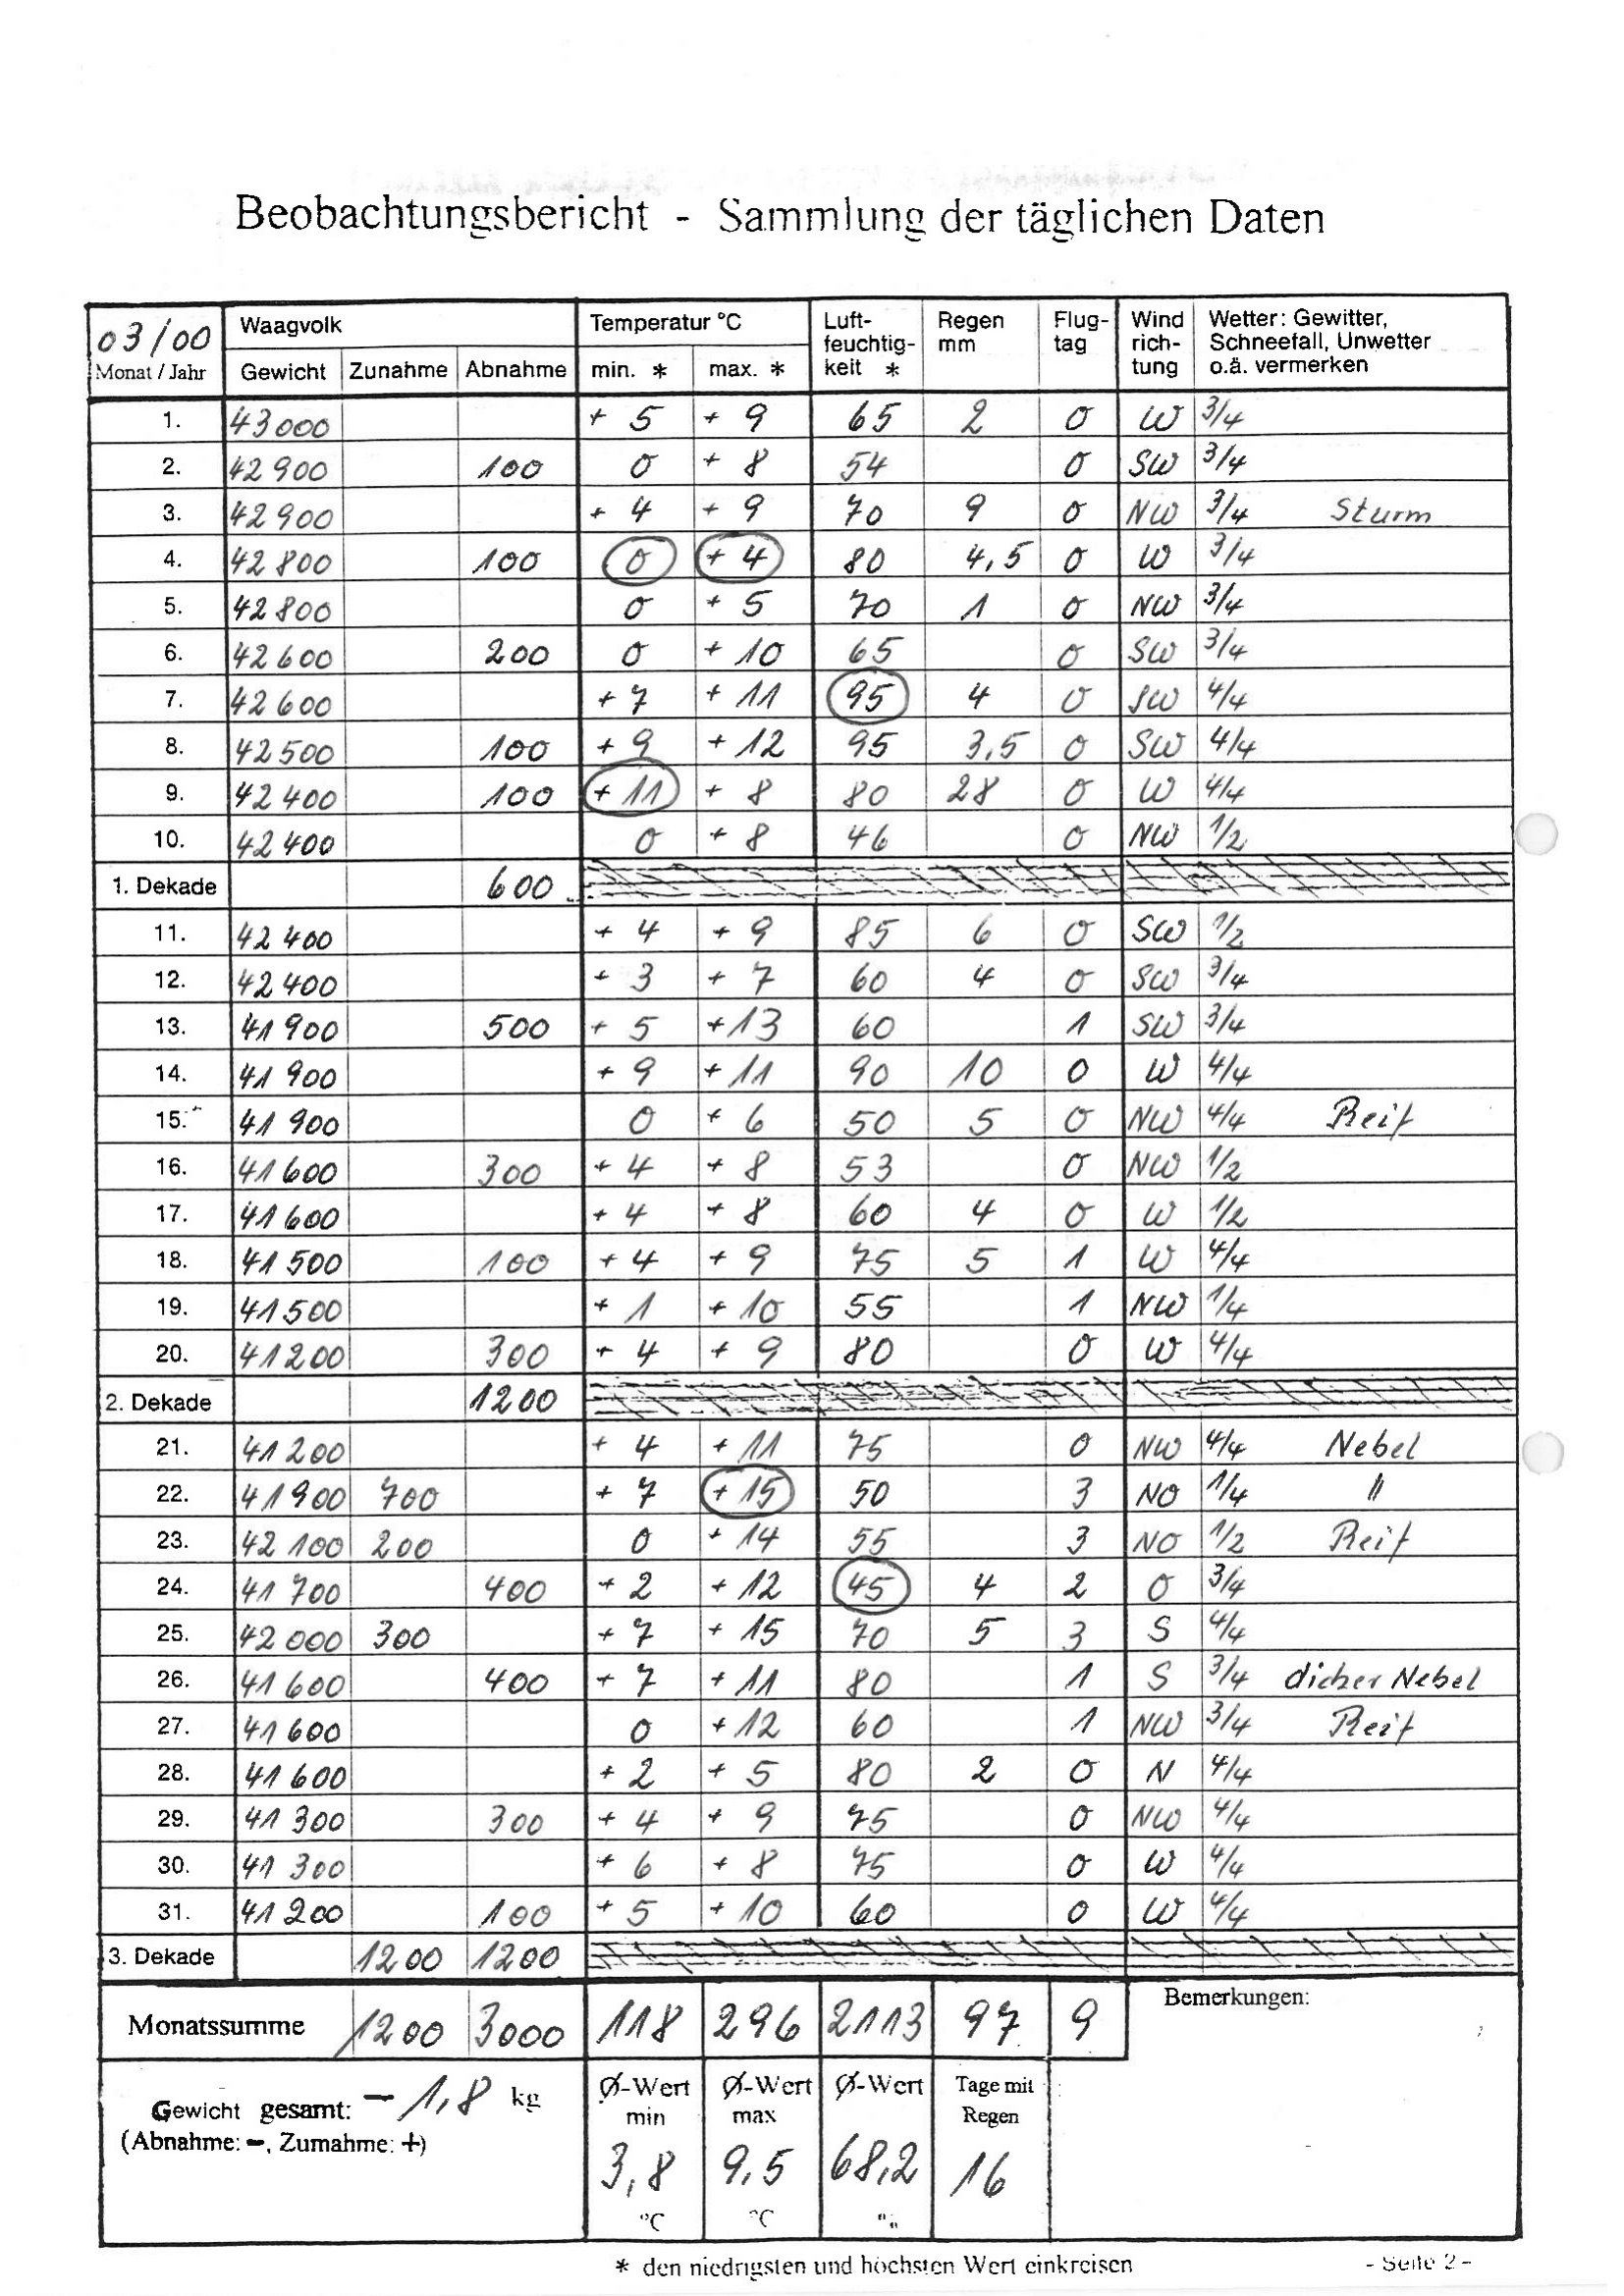 Beobachtungsbericht - Sammlung der täglichen Daten
03/00 Waagvolk Temperatur °C Luft- Regen Flug- Wind Wetter: Gewitter,
feuchtig- mm tag rich- Schneefall, Unwetter
Monat / Jahr Gewicht Zunahme Abnahme min. * max. * keit * tung o.ä. vermerken
1. 43000 + 5 + 9 65 2 0 W 3/4
2. 42900 100 0 + 8 54 0 SW 3/4
3. 42900 + 4 + 9 70 9 0 NW 3/4 Sturm
4. 42800 100 0 + 4 80 4,5 0 W 3/4
5. 42800 0 + 5 70 1 0 NW 3/4
6. 42600 200 0 + 10 65 0 SW 3/4
7. 42600 + 7 + 11 95 4 0 SW 4/4
8. 42500 100 + 9 + 12 95 3,5 0 SW 4/4
9. 42400 100 + 11 + 8 80 28 0 W 4/4
10. 42400 0 + 8 46 0 NW 1/2
1. Dekade 600
11. 42400 + 4 + 9 85 6 0 SW 1/2
12. 42400 + 3 + 7 60 4 0 SW 3/4
13. 41900 500 + 5 +13 60 1 SW 3/4
14. 41900 + 9 + 11 90 10 0 W 4/4
15. 41900 0 + 6 50 5 0 NW 4/4 Reif
16. 41600 300 + 4 + 8 53 0 NW 1/2
17. 41600 + 4 + 8 60 4 0 W 1/2
18. 41500 100 + 4 + 9 75 5 1 W 4/4
19. 41500 + 1 + 10 55 1 NW 1/4
20. 41200 300 + 4 + 9 80 0 W 4/4
2. Dekade 1200
21. 41200 + 4 + 11 75 0 NW 4/4 Nebel
22. 41900 700 + 7 + 15 50 3 NO 1/4 "
23. 42100 200 0 + 14 55 3 NO 1/2 Reif
24. 41700 400 + 2 + 12 45 4 2 O 3/4
25. 42000 300 + 7 + 15 70 5 3 S 4/4
26. 41600 400 + 7 + 11 80 1 S 3/4 dicker Nebel
27. 41600 0 + 12 60 1 NW 3/4 Reif
28. 41600 + 2 + 5 80 2 0 N 4/4
29. 41300 300 + 4 + 9 75 0 NW 4/4
30. 41300 + 6 + 8 75 0 W 4/4
31. 41200 100 + 5 + 10 60 0 W 4/4
3. Dekade 1200 1200
Monatssumme 1200 3000 118 296 2113 97 9 Bemerkungen:
Gewicht gesamt: - 1,8 kg Ø-Wert Ø-Wert Ø-Wert Tage mit
(Abnahme: -, Zumahme: +) min max Regen
3,8 9,5 68,2 16
°C °C
* den niedrigsten und höchsten Wert einkreisen - Seite 2 -